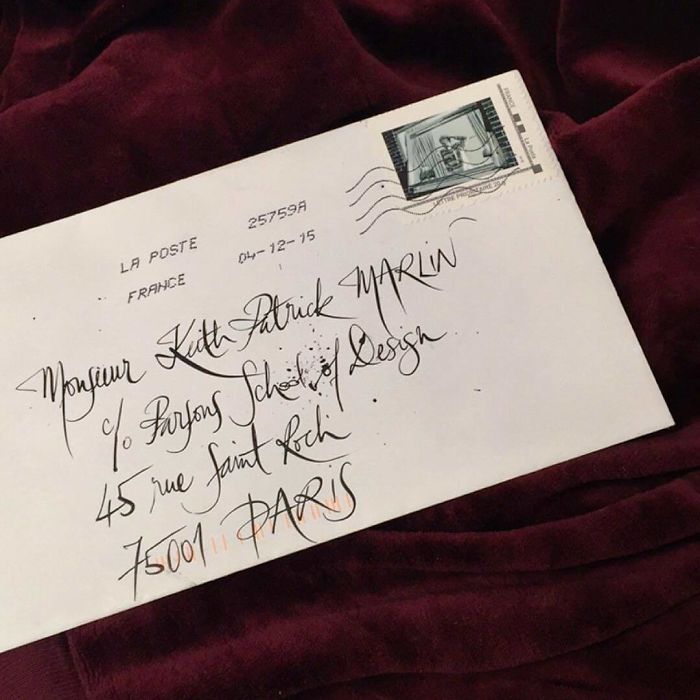 FRANCE
La Poste
LETTRE PRIORITAIRE 20 g
LA POSTE 25759A
FRANCE 04-12-15
Monsieur Keith Patrick MARLIN
c/o Parsons School of Design
45 rue Saint Roch
75001 PARIS